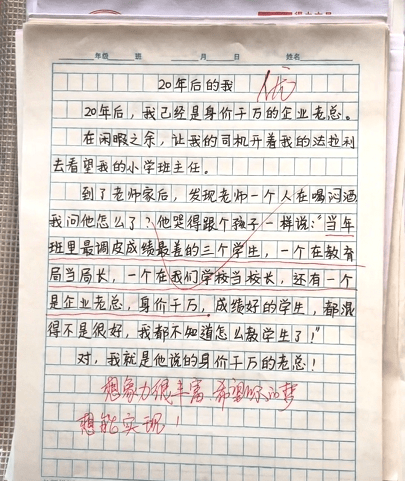 年级 班 月 日 姓名
20年后的我
优
20年后,我已经是身价千万的企业老总。
在闲暇之余,让我的司机开着我的法拉利
去看望我的小学班主任。
到了老师家后,发现老师一个人在喝闷酒
我问他怎么了?他哭得跟个孩子一样说:“当年
班里最调皮成绩最差的三个学生,一个在教育
局当局长,一个在我们学校当校长,还有一个
是企业老总,身价千万,成绩好的学生,都混
得不是很好,我都不知道怎么教学生了!”
对,我就是他说的身价千万的老总!
想象力很丰富,希望你的梦
想能实现!